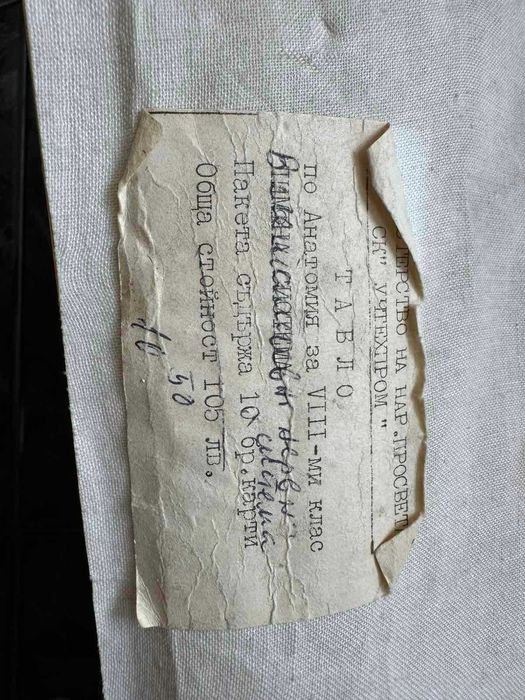 ТЕРСТВО НА НАР.ПРОСВЕТ
СК" УЧТЕХПРОМ "
ТАБЛО
по Анатомия за VIII-ми клас
нервна
система
Пакета съдържа 10 бр.карти
Обща стойност 105 лв.
10 50